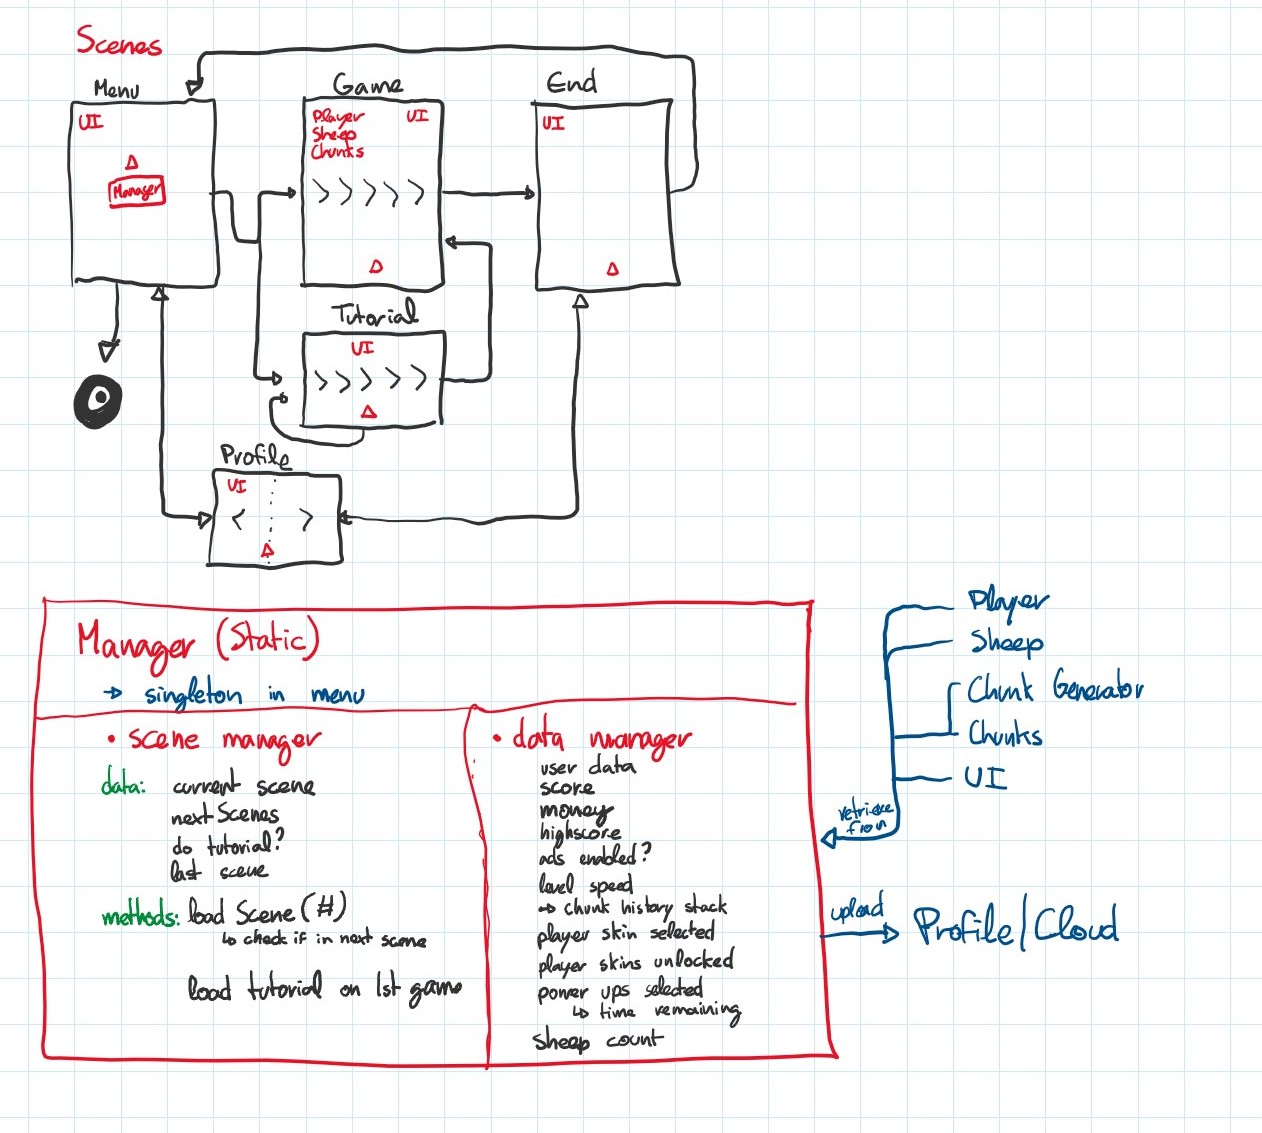 Scenes
Menu
Game
End
UI
Manager
Player
UI
Sheep
Chunks
UI
Tutorial
UI
Profile
UI
Manager (Static)
→ singleton in menu
• scene manager
data: current scene
next Scenes
do tutorial?
last scene
methods: load Scene (#)
↳ check if in next scene
load tutorial on 1st game
• data manager
user data
score
money
highscore
ads enabled?
level speed
→ chunk history stack
player skin selected
player skins unlocked
power ups selected
↳ time remaining
sheep count
Player
Sheep
Chunk Generator
Chunks
UI
retrieve
from
upload
Profile/Cloud